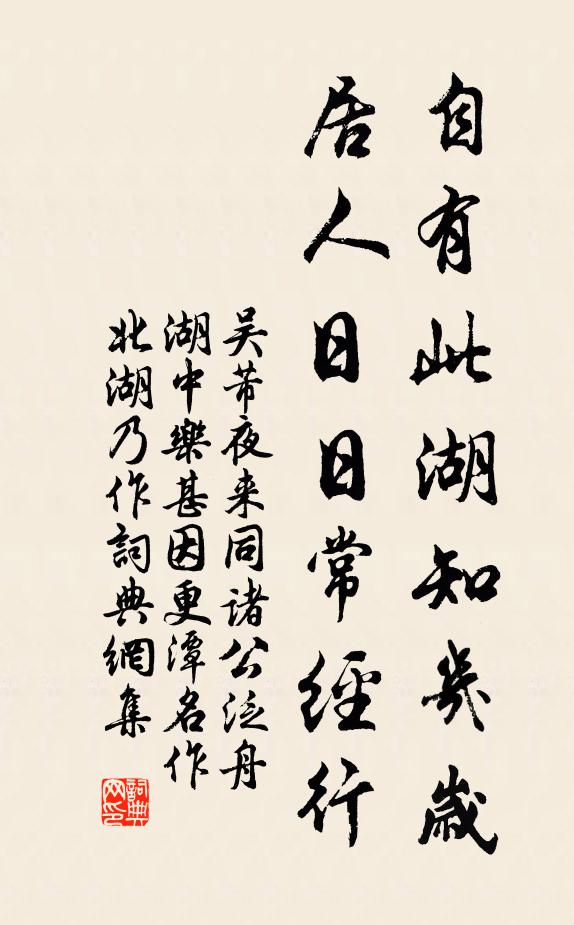 自有此湖知幾歲
居人日日常經行
吴芾夜来同諸公泛舟
湖中樂甚因更潭名作
北湖乃作詞典網集
詞典网印